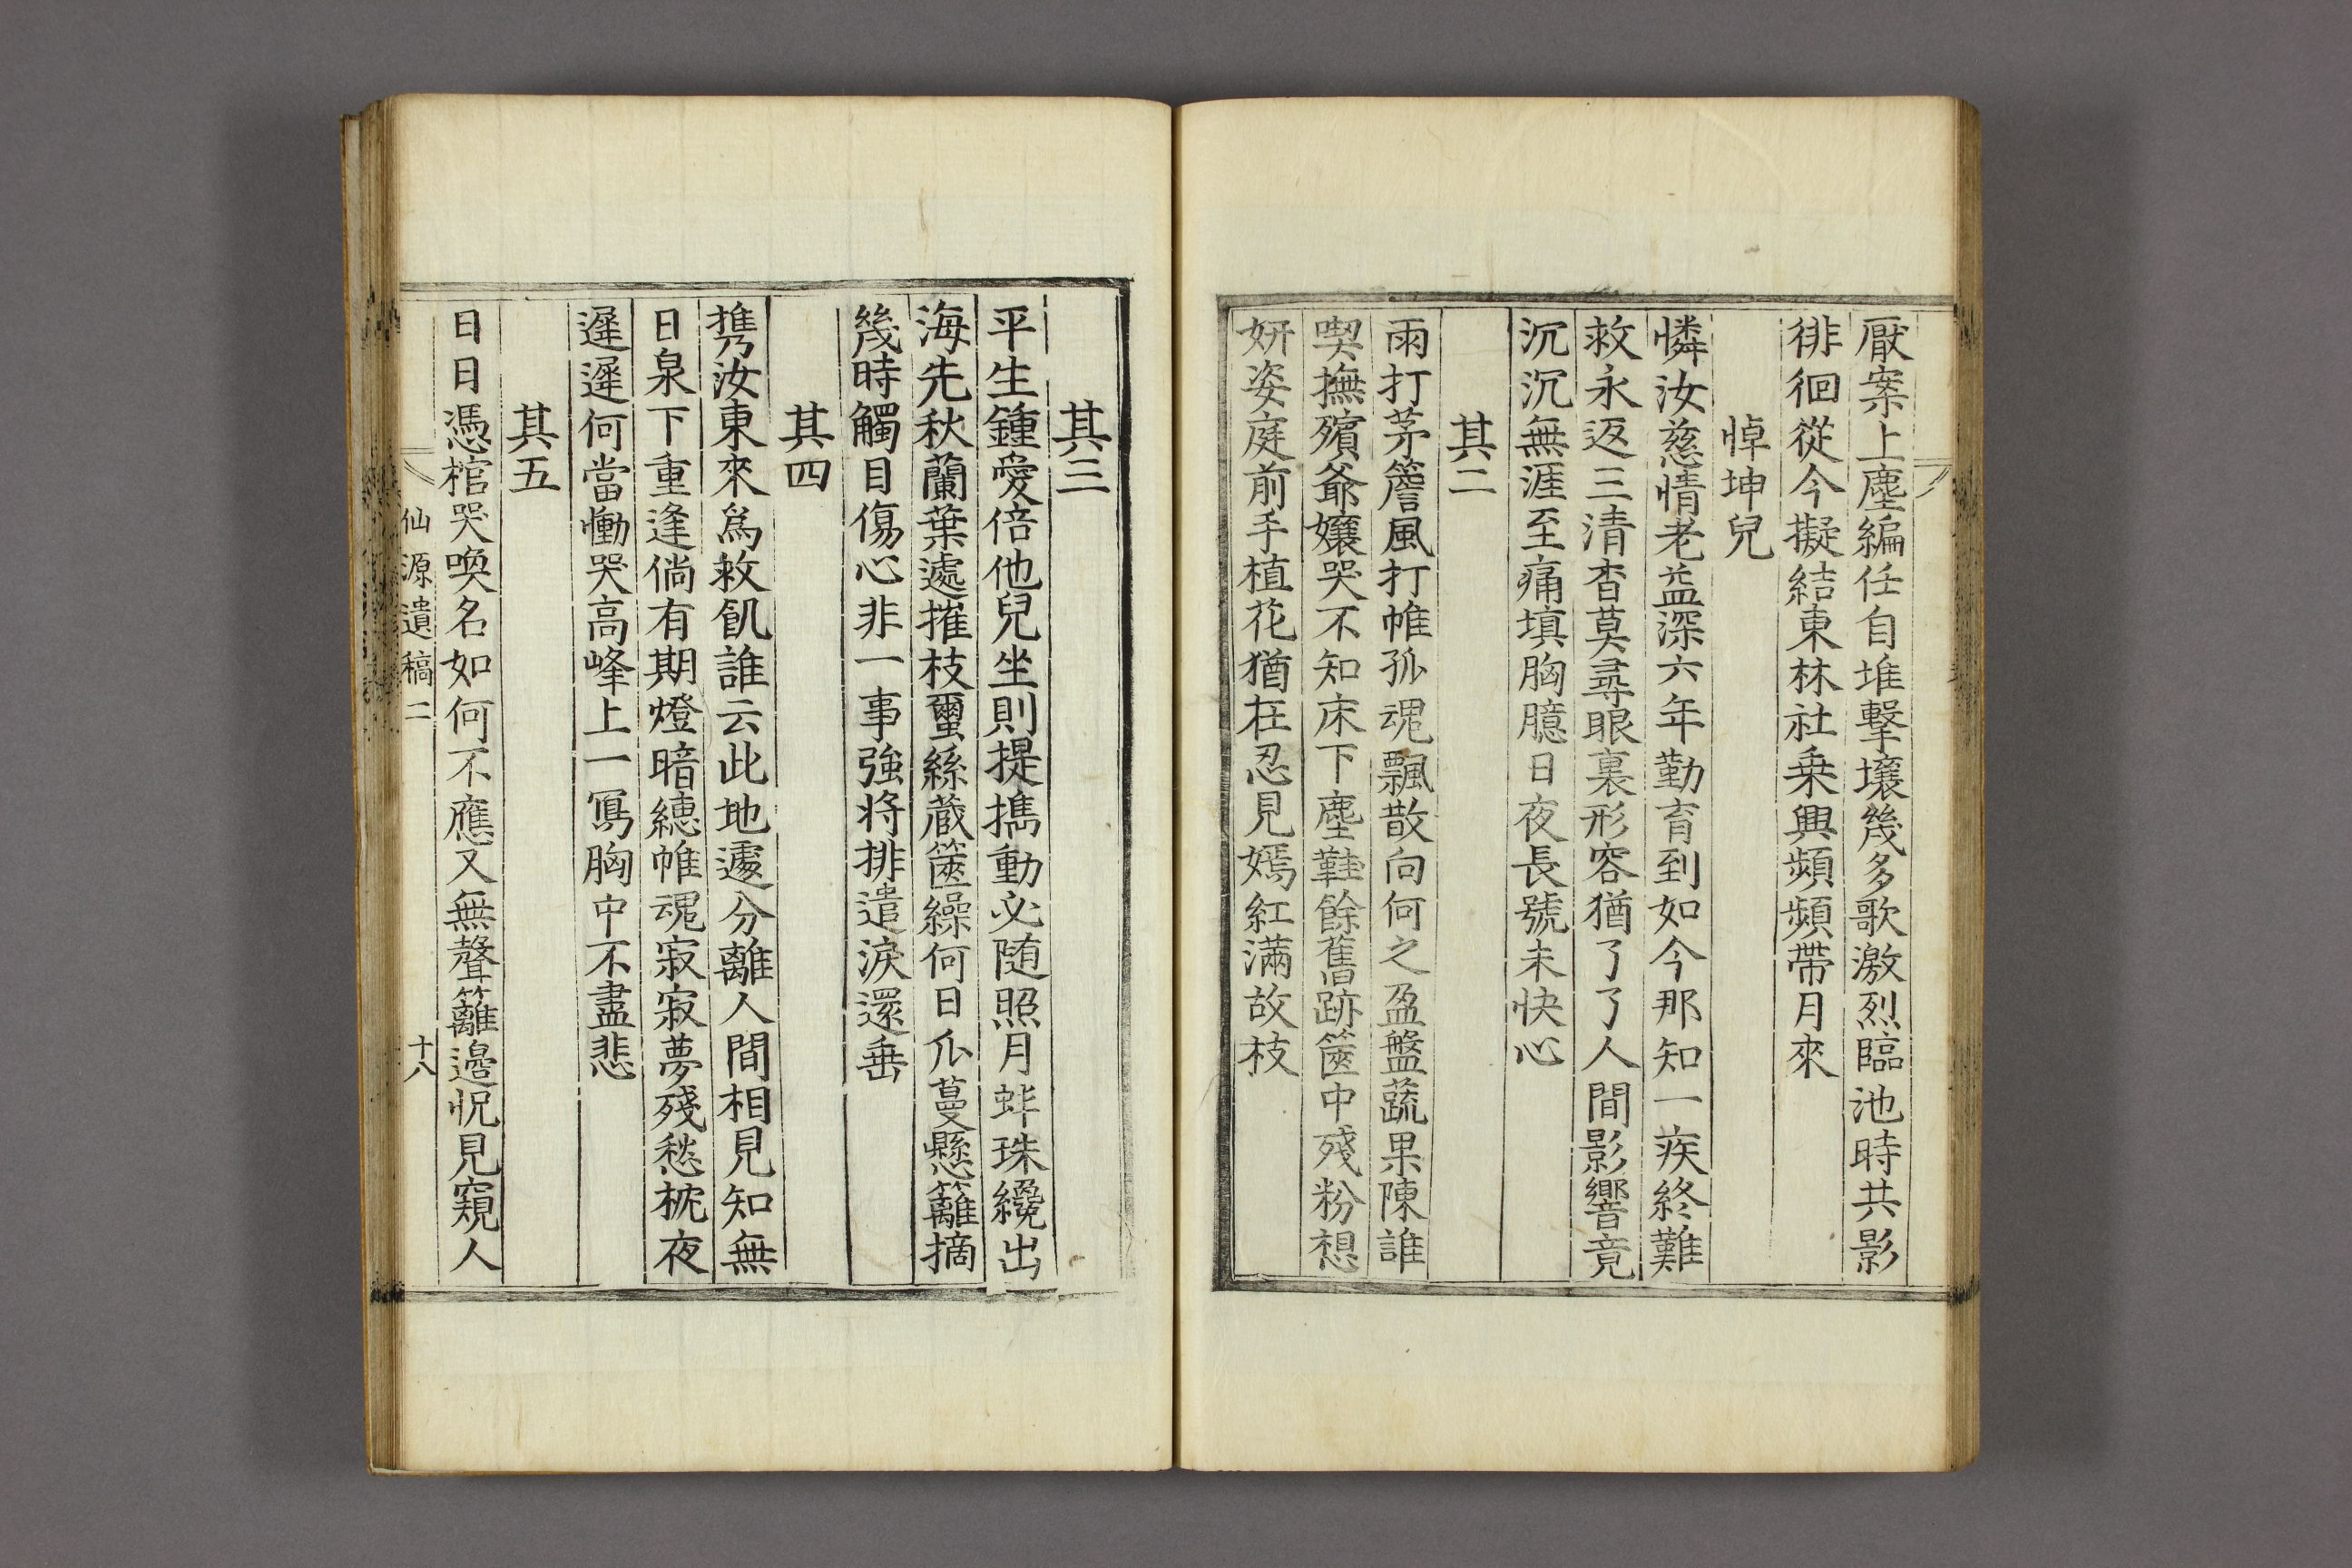 厭案上塵編任自堆擊壤幾多歌激烈臨池時共影
徘徊從今擬結東林社乗興頻頻帶月來
悼坤兒
憐汝慈情老益深六年勤育到如今那知一疾終難
救永返三清杳莫尋眼裏形容猶了了人間影響竟
沉沉無涯至痛填胸臆日夜長號未快心
其二
雨打茅簷風打帷孤魂飄散向何之盈盤蔬果陳誰
喫撫殯爺孃哭不知床下塵鞋餘舊跡篋中殘粉想
妍姿庭前手植花猶在忍見嫣紅滿故枝
其三
平生鍾愛倍他兒坐則提擕動必随照月蚌珠纔出
海先秋蘭葉遽摧枝蠒絲蔵篋繰何日爪蔓懸籬摘
幾時觸目傷心非一事強将排遣淚還垂
其四
携汝東來爲救飢誰云此地遽分離人間相見知無
日泉下重逢倘有期燈暗繐帷魂寂寂夢殘愁枕夜
遲遲何當慟哭高峰上一寫胸中不盡悲
其五
日日憑棺哭喚名如何不應又無聲籬邉怳見窺人
仙源遺稿二
十八